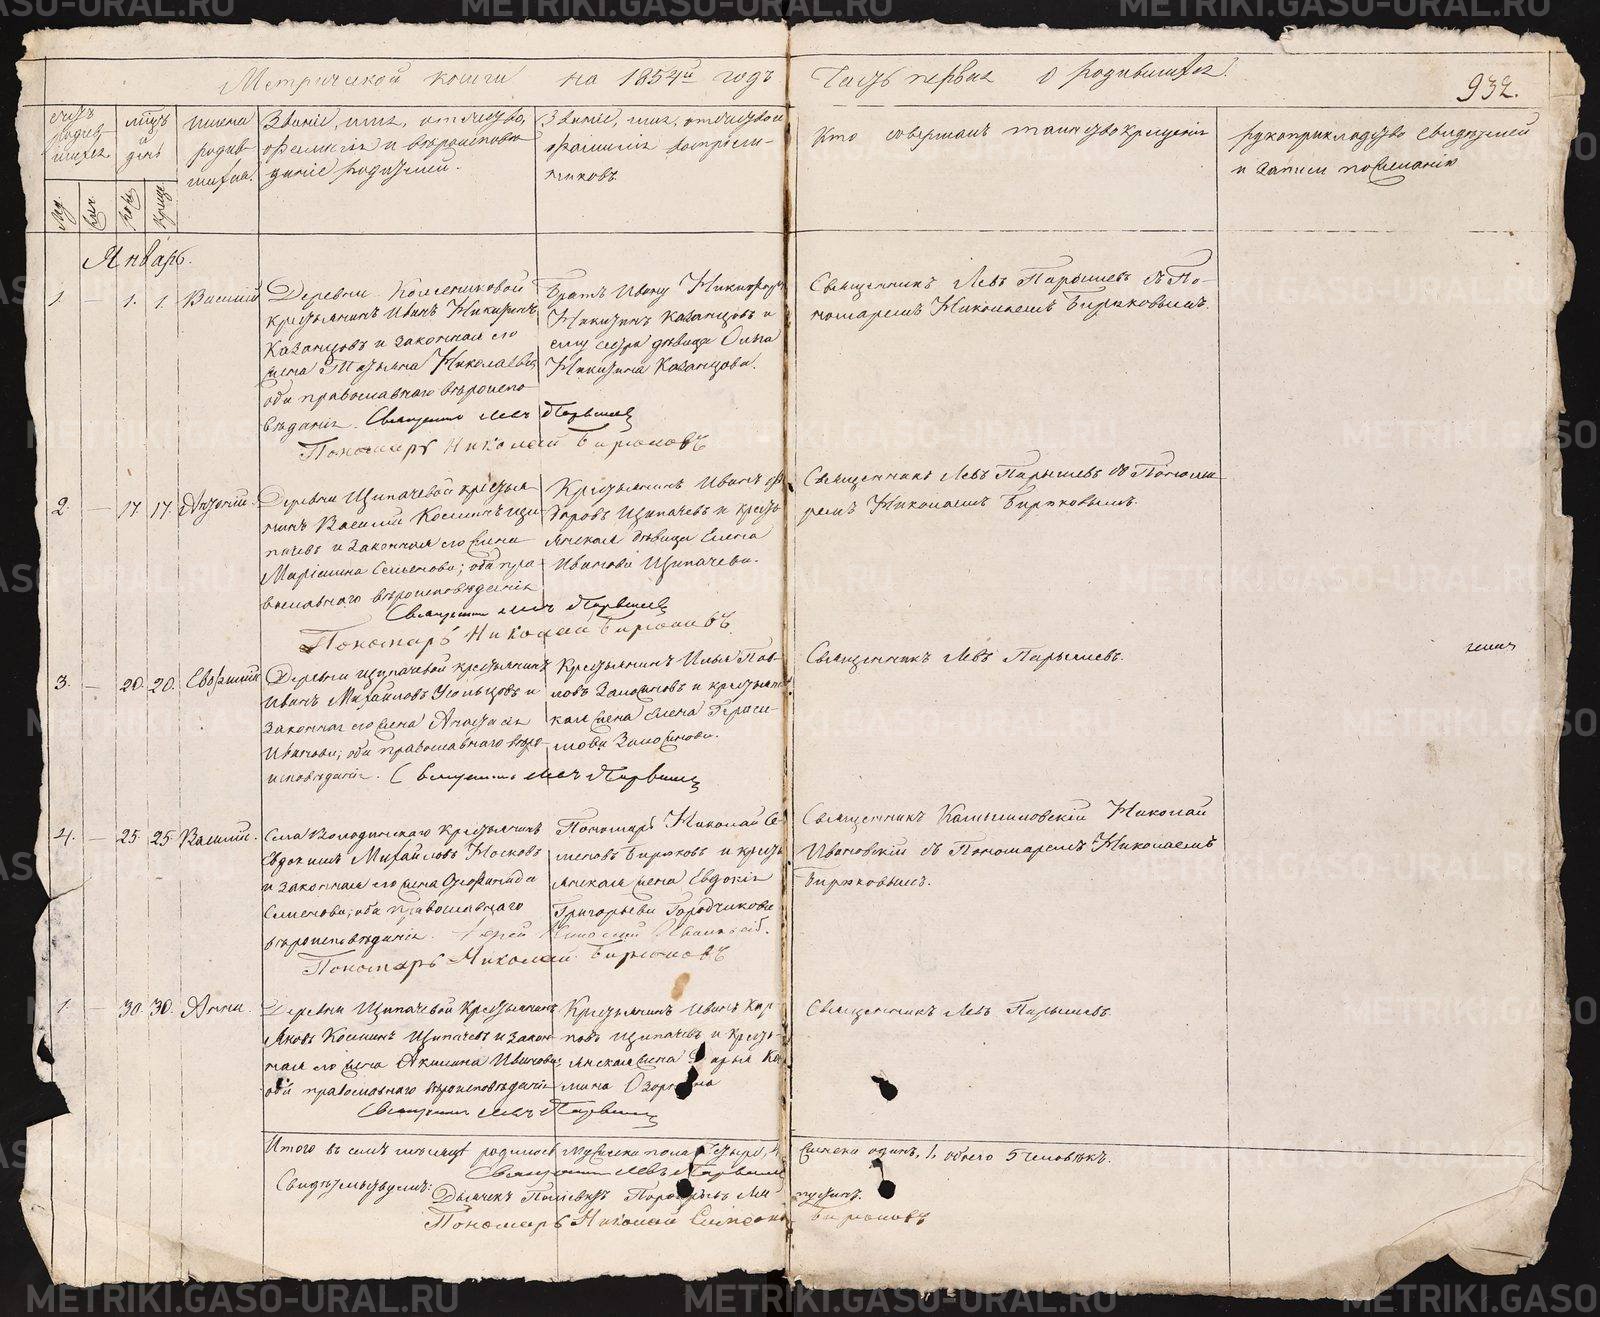 METRIKI.GASU-URAL.RU
Метрической книги на 1854й годъ Часть первая о родившихся.
932.
Счетъ родившихся
мѣсяцъ и день
Имена родившихся.
Званіе, имя, отчество, фамилія и вѣроисповѣданіе родителей.
Званіе, имя, отчество и фамилія воспріемниковъ
Кто совершалъ таинство крещенія
Рукоприкладство свидѣтелей и записи по желанію
Январь.
1. — 1. 1. Василій
Деревни
крестьянинъ Иванъ Никитинъ
Казанцовъ и законная его
жена Татьяна Николаевна
оба православнаго вѣроиспо-
вѣданія. Священникъ Левъ Парышев
Пономарь Николай Бирюковъ
Братъ Ивану
Никитинъ Казанцовъ и
ему сестра дѣвица Ольга
Никитина Казанцова.
Священникъ Левъ Парышевъ съ По-
номаремъ Николаемъ Бирюковымъ.
2. — 17. 17. Антоній.
Деревни Щипачевой крестья-
нинъ Василій Косминъ Щи-
пачевъ и законная его жена
Семенова; оба пра-
вославнаго вѣроисповѣданія
Священникъ Левъ Парышев
Пономарь Николай Бирюковъ.
Крестьянинъ Иванъ Фе-
доровъ Щипачевъ и кресть-
янская дѣвица Елена
Иванова Щипачева.
Священникъ Левъ Парышевъ съ Понома-
ремъ Николаемъ Бирюковымъ.
3. — 20. 20. Евфимій
Деревни Щипачевой крестьянинъ
Иванъ Михайловъ Усольцовъ и
законная его жена Анастасія
Иванова; оба православнаго вѣро-
исповѣданія. Священникъ Левъ Парышев
Крестьянинъ Илья Пав-
ловъ и крестьян-
ская жена Елена Гераси-
мова
Священникъ Левъ Парышевъ.
4. — 25. 25. Василій.
Села Володинскаго крестьянинъ
Евдокимъ Михайловъ Носковъ
и законная его жена
Семенова; оба православнаго
вѣроисповѣданія. Іерей Николай Ивановскій.
Пономарь Николай Бирюковъ
Пономарь Николай Се-
меновъ Бирюковъ и кресть-
янская жена Евдокія
Григорьева Городчикова
Священникъ Камышловскій Николай
Ивановскій съ Пономаремъ Николаемъ
Бирюковымъ.
1. — 30. 30. Анна.
Деревни Щипачевой крестьянинъ
Яковъ Косминъ Щипачевъ и закон-
ная его жена Акилина Иванова;
оба православнаго вѣроисповѣданія
Священникъ Левъ Парышев
Крестьянинъ Иванъ Кар-
повъ Щипачевъ и кресть-
янская жена Дарья
Священникъ Левъ Парышевъ.
Итого въ семъ мѣсяцѣ родилось мужеска пола четыре, 4 женска одинъ, 1. обоего 5 человѣкъ.
Священникъ Левъ Парышев
Свидѣтельствуемъ: Дьячекъ
Пономарь Николай Бирюковъ